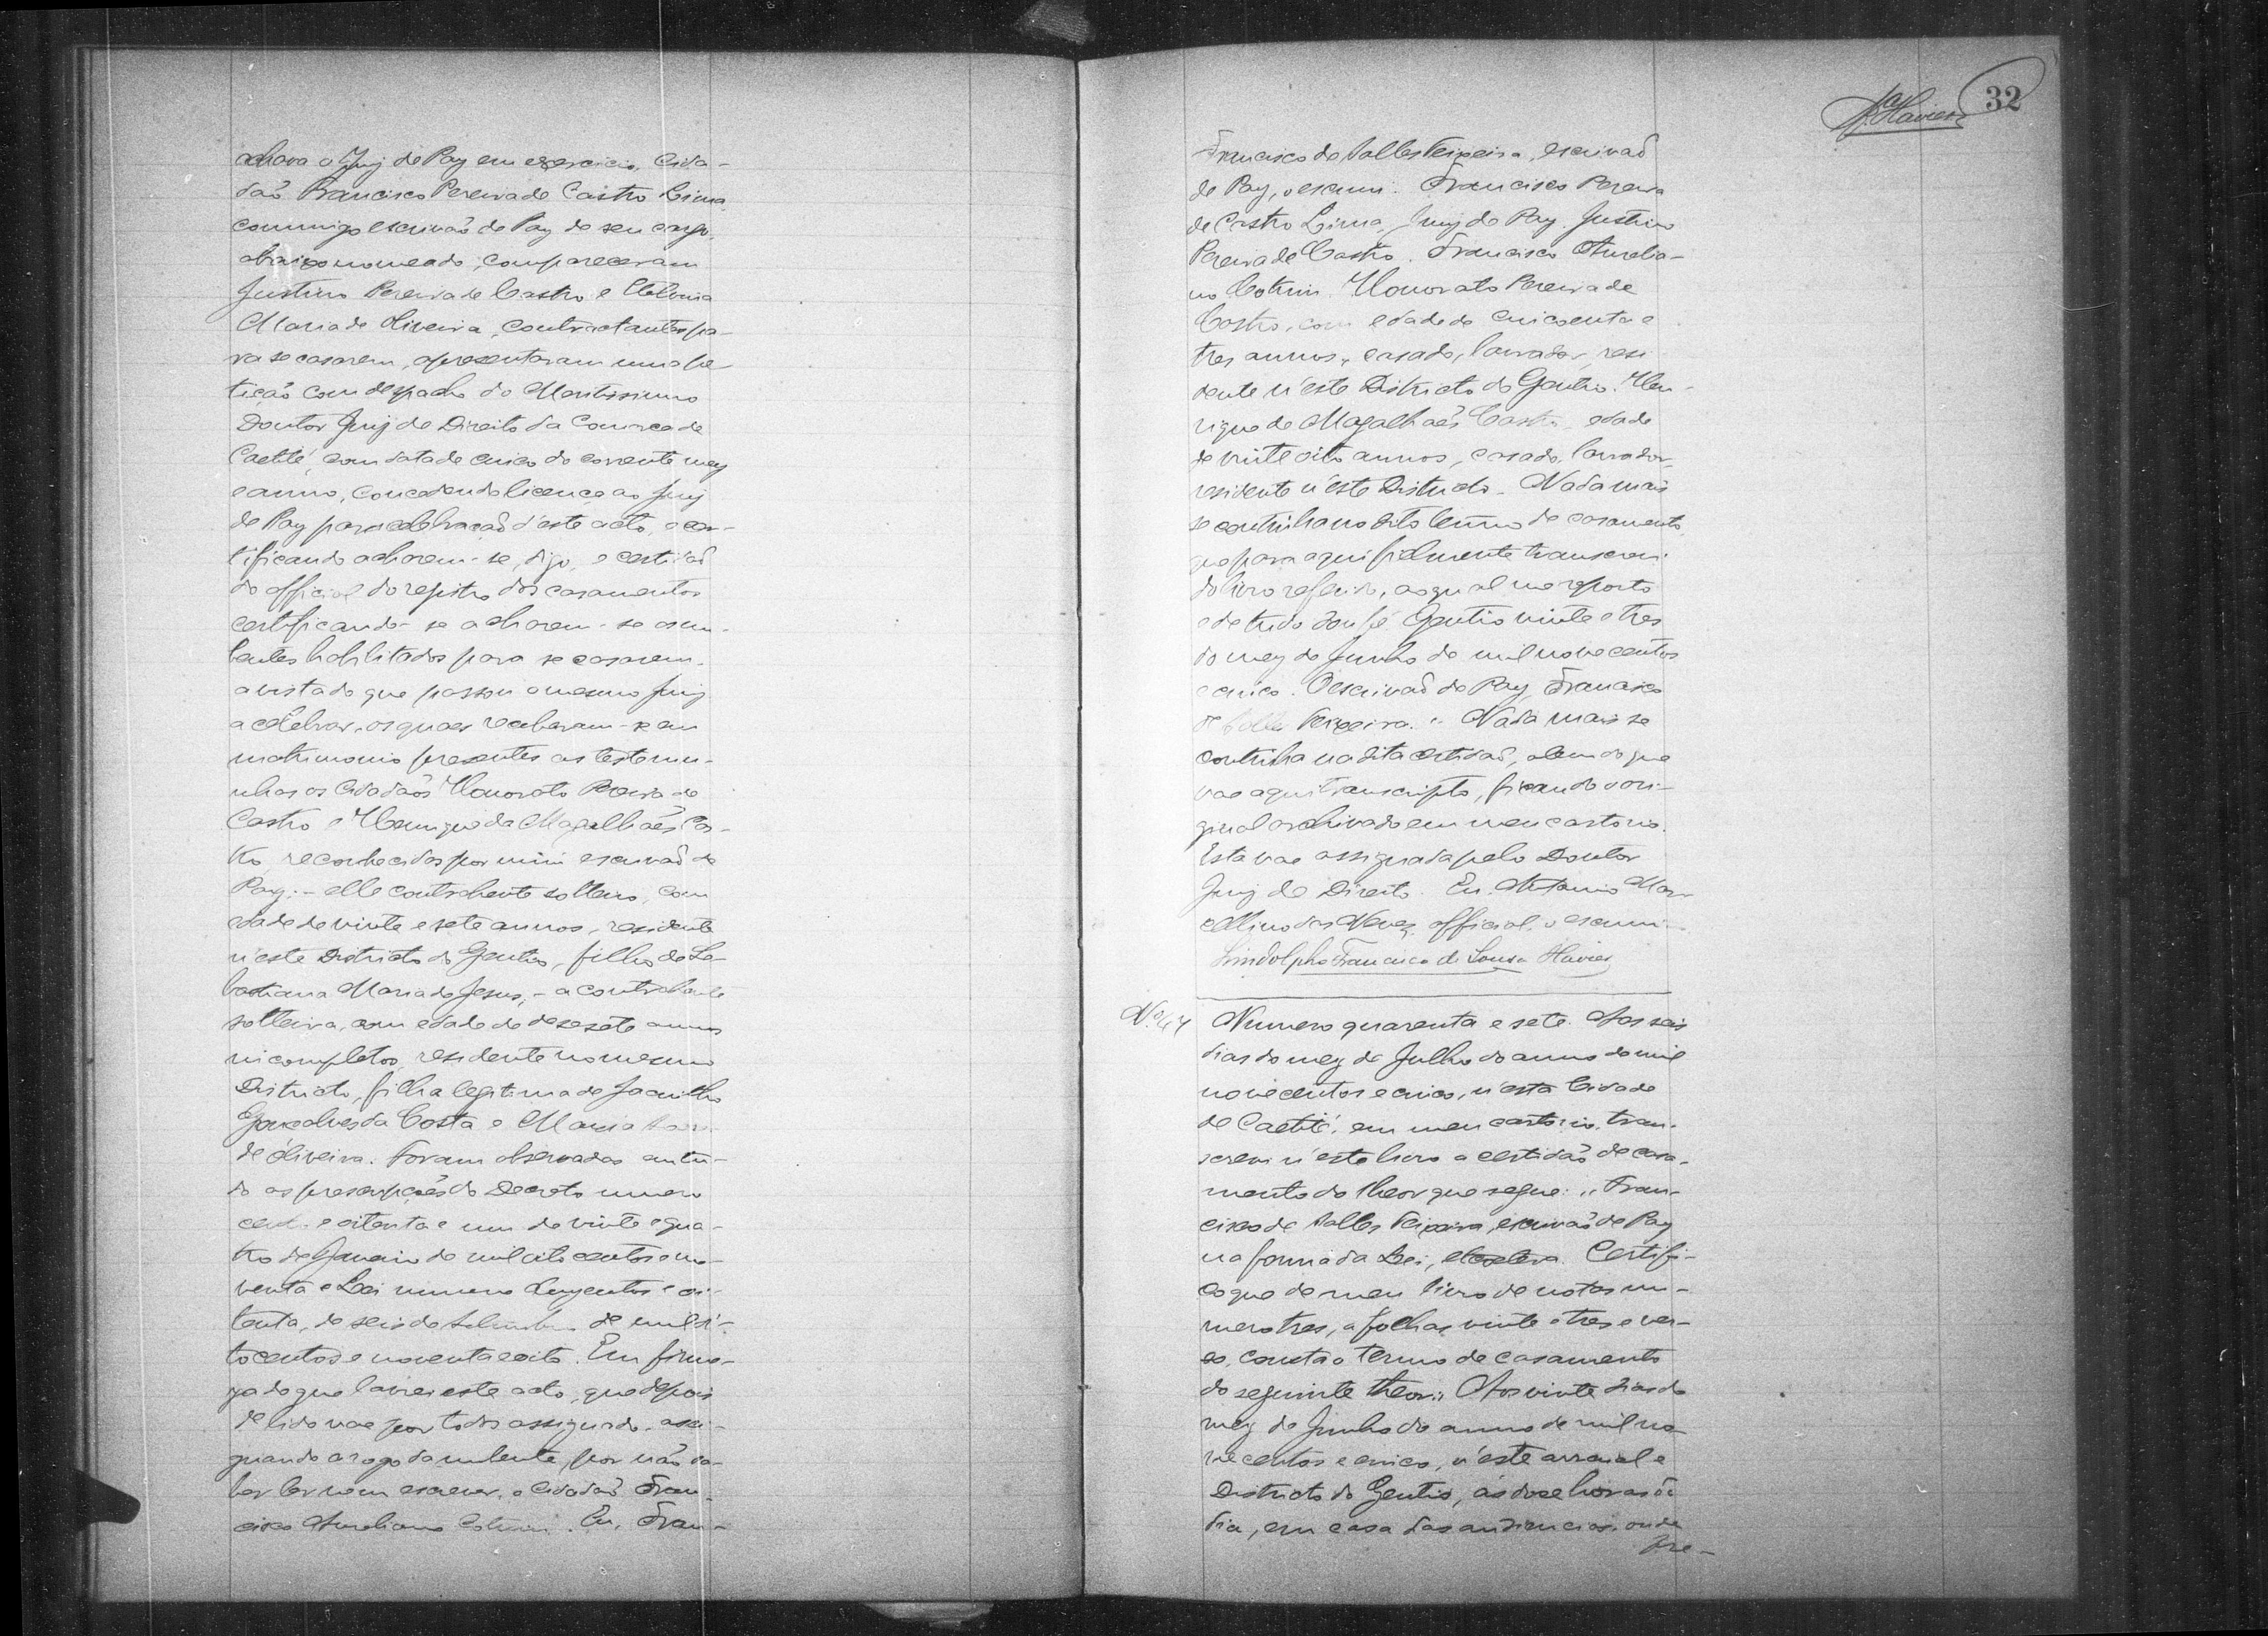 achava o Juiz de Paz em exercicio, Cida-
dão Francisco Pereira de Castro Lima,
commigo escrivão de Paz de seu cargo,
abaixo nomeado, compareceram
Justino Pereira de Castro e
Maria de Oliveira, contractantes pa-
ra se casarem, apresentaram uma pe-
tição com despacho do Meritissimo
Doutor Juiz de Direito da Comarca de
Caetité, com data de cinco do corrente mez
e anno, concedendo licença ao Juiz
de Paz para celebração d'este acto, e cer-
tificando acharem-se, digo, e certidão
do official do registro dos casamentos
certificando-se acharem-se os nu-
bentes habilitados para se casarem.
a vista do que passou o mesmo Juiz
a celebrar, os quaes receberam-se em
matrimonio presentes as testemu-
nhas os Cidadãos Honorato Pereira de
Castro e Henrique de Magalhães Cas-
tro, reconhecidos por mim escrivão de
Paz: - elle contrahente solteiro, com
edade de vinte e sete annos, residente
n'este Districto do Gentio, filho de Se-
bastiana Maria de Jesus, - a contrahente
solteira, com edade de desesete annos
incompletos, residente no mesmo
Districto, filha legitima de Jacintho
Gonçalves da Costa e Maria
de Oliveira. Foram observadas em tu-
do as prescripções do Decreto numero
cento e oitenta e um de vinte e qua-
tro de Janeiro de mil oito centos e no-
venta e Lei numero duzentos e oi-
tenta, de seis de Setembro de mil oi-
tocentos e noventa e oito. Em firme-
za do que lavrei este acto, que depois
de lido vae por todos assignado, assi-
gnando a rogo da nubente, por não sa-
ber ler nem escrever, o cidadão Fran-
cisco Aureliano Cotrim. Eu, Fran-
32
Francisco de Salles Teixeira, escrivão
de Paz, o escrevi. Francisco Pereira
de Castro Lima, Juiz de Paz. Justino
Pereira de Castro. Francisco Aurelia-
no Cotrim. Honorato Pereira de
Castro, com edade de cincoenta e
tres annos, casado, lavrador, resi-
dente n'este Districto do Gentio. Hen-
rique de Magalhães Castro, edade
de vinte oito annos, casado, lavrador,
residente n'este Districto. Nada mais
se continha no dito termo de casamento,
que para aqui fielmente transcrevi
do livro referido, ao qual me reporto
e de tudo dou fé. Gentio vinte e tres
do mez de Junho de mil nove centos
e cinco. O escrivão de Paz, Francisco
de Salles Teixeira. " Nada mais se
continha na dita certidão, alem do que
vae aqui transcripto, ficando o ori-
ginal archivado em meu cartorio.
Esta vae assignada pelo Doutor
Juiz de Direito. Eu, Antonio Mar-
cellino das Neves, official, o escrevi.
Lindolpho Francisco de Sousa Havier
Nº 47 Numero quarenta e sete. Aos seis
dias do mez de Julho do anno de mil
novecentos e cinco, n'esta Cidade
de Caetité, em meu cartorio, trans-
crevi n'este livro a certidão de casa-
mento do theor que segue: " Fran-
cisco de Salles Teixeira, escrivão de Paz
na forma da Lei, etcetera. Certifi-
co que de meu livro de notas nu-
mero tres, a folhas vinte e tres e ver-
so, consta o termo de casamento
do seguinte theor: " Aos vinte dias do
mez de Junho do anno de mil no-
vecentos e cinco, n'este arraial e
Districto do Gentio, ás doze horas do
dia, em casa das audiencias onde